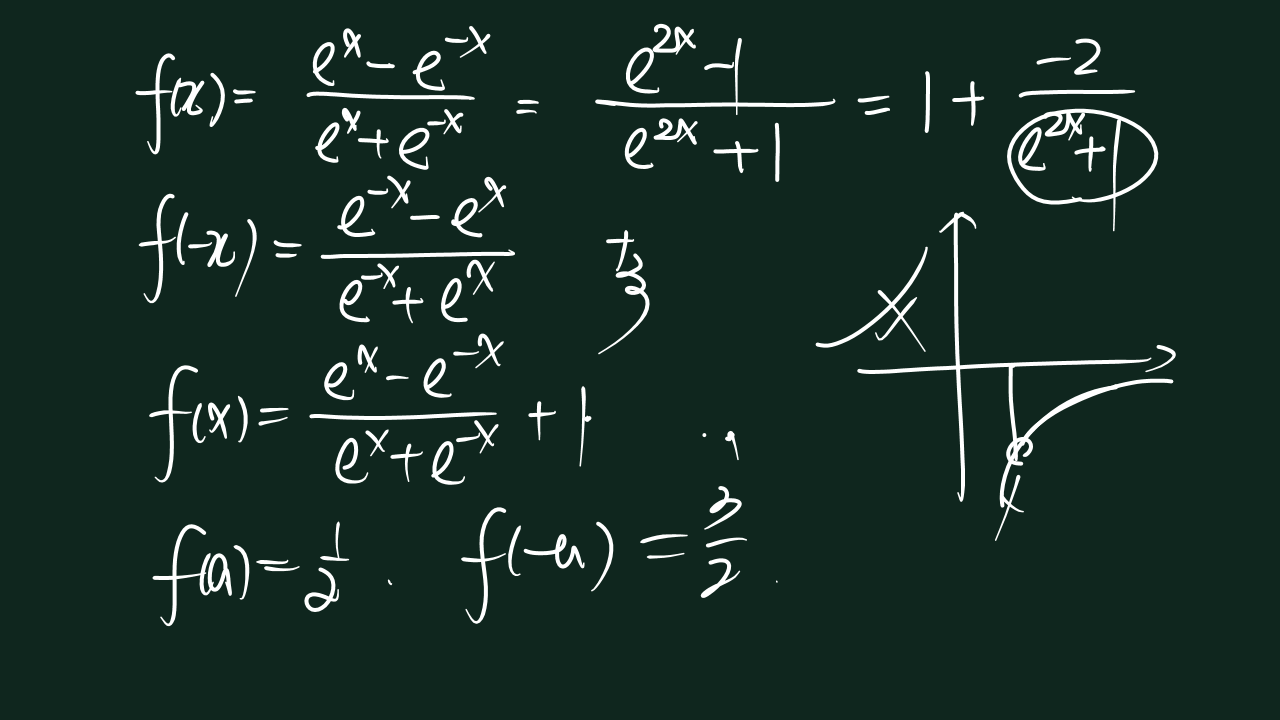 f(x) = (e^x - e^{-x})/(e^x + e^{-x}) = (e^{2x} - 1)/(e^{2x} + 1) = 1 + (-2)/(e^{2x} + 1)
f(-x) = (e^{-x} - e^x)/(e^{-x} + e^x)
f(x) = (e^x - e^{-x})/(e^x + e^{-x}) + 1
f(a) = 1/2 . f(-a) = 3/2 .